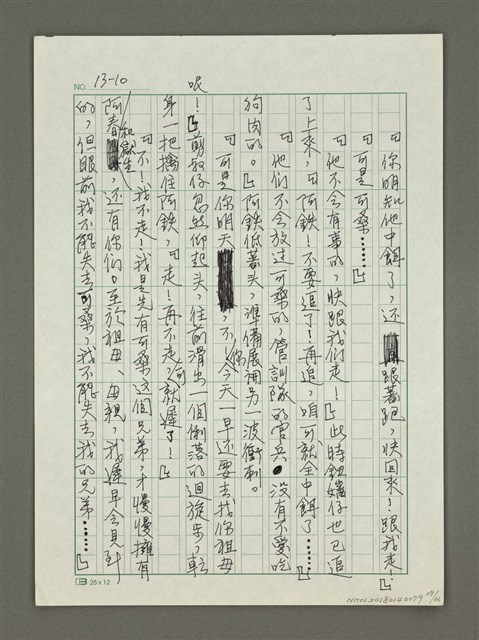 NO. 13-10
「你明知他中餌了，還跟著跑，快回來！跟我走！」
「可是可桑……」
「他不會有事的，快跟我們走！」此時鈕媸仔也已追
了上來，「阿鉄！不要追了！再追，咱可就全中餌了……」
「他們不會放過可桑的，管訓隊的官兵沒有不愛吃
狗肉的。」阿鉄低著頭，準備展開另一波衝刺。
「可是你明天，不，你今天一早還要去找你祖母
呢！」剪叔仔忽然仰起头，往前滑出一個俐落的迴旋步，転
身一把擒住阿鉄，「走！再不走，可就遲了！」
「不！我不走！我是先有可桑这個兄弟，才慢慢擁有
阿春和獄生，还有你们。至於祖母、母親，我遲早会見到
的，但眼前我不能失去可桑，我不能失去我的兄弟……」
25x12
NMTL20180140079